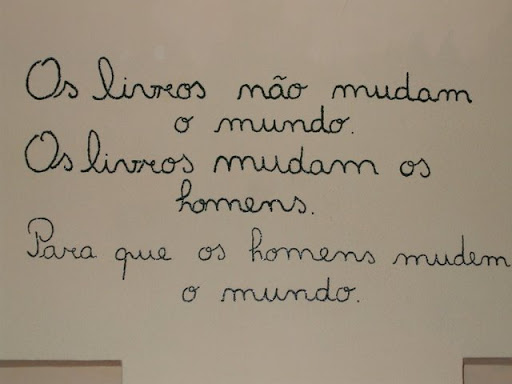 Os livros não mudam
o mundo.
Os livros mudam os
homens.
Para que os homens mudem
o mundo.